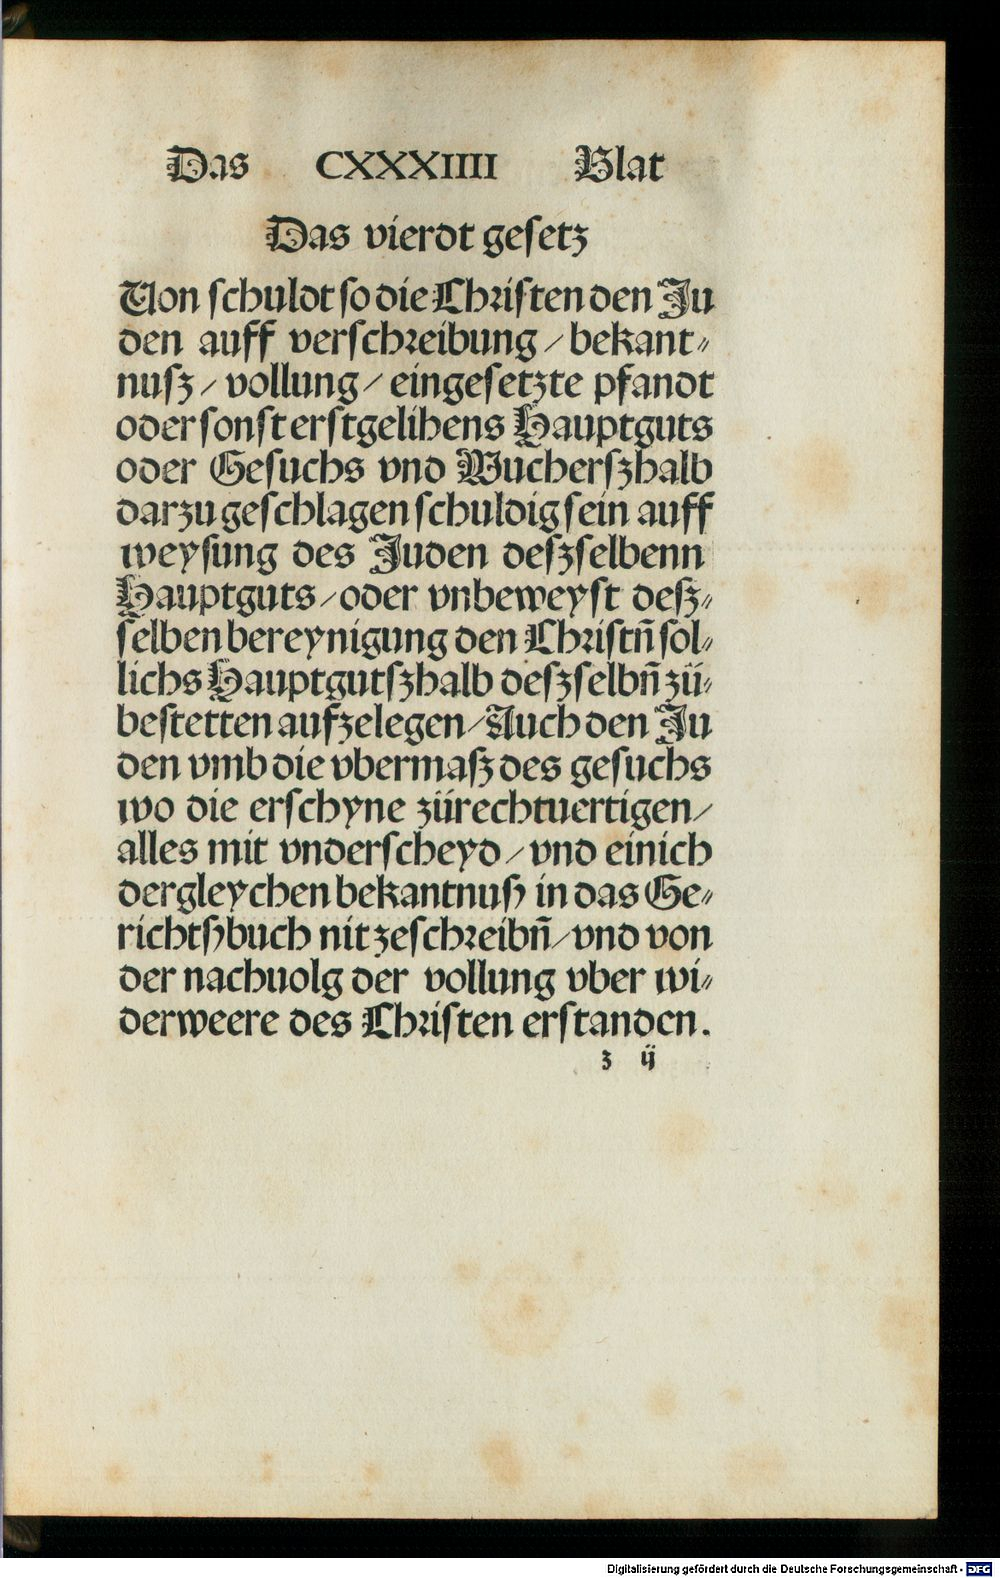 Das CXXXIIII Blat
Das vierdt gesetz
Von schuldt so die Christen den Ju
den auff verschreibung / bekant⸗
nusz / vollung / eingesetzte pfandt
oder sonst erstgelihens Hauptguts
oder Gesuchs vnd Wucherszhalb
darzu geschlagen schuldig sein auff
weysung des Juden deszselbenn
Hauptguts / oder vnbeweyst desz⸗
selben bereynigung den Christñ sol⸗
lichs Hauptgutszhalb deszselbñ zü⸗
bestetten aufzelegen / Auch den Ju
den vmb die vbermasz des gesuchs
wo die erschyne zürechtuertigen /
alles mit vnderscheyd / vnd einich
dergleychen bekantnuß in das Ge⸗
richtßbuch nit zeschreibñ / vnd von
der nachuolg der vollung vber wi⸗
derweere des Christen erstanden.
z ij
Digitalisierung gefördert durch die Deutsche Forschungsgemeinschaft - DFG